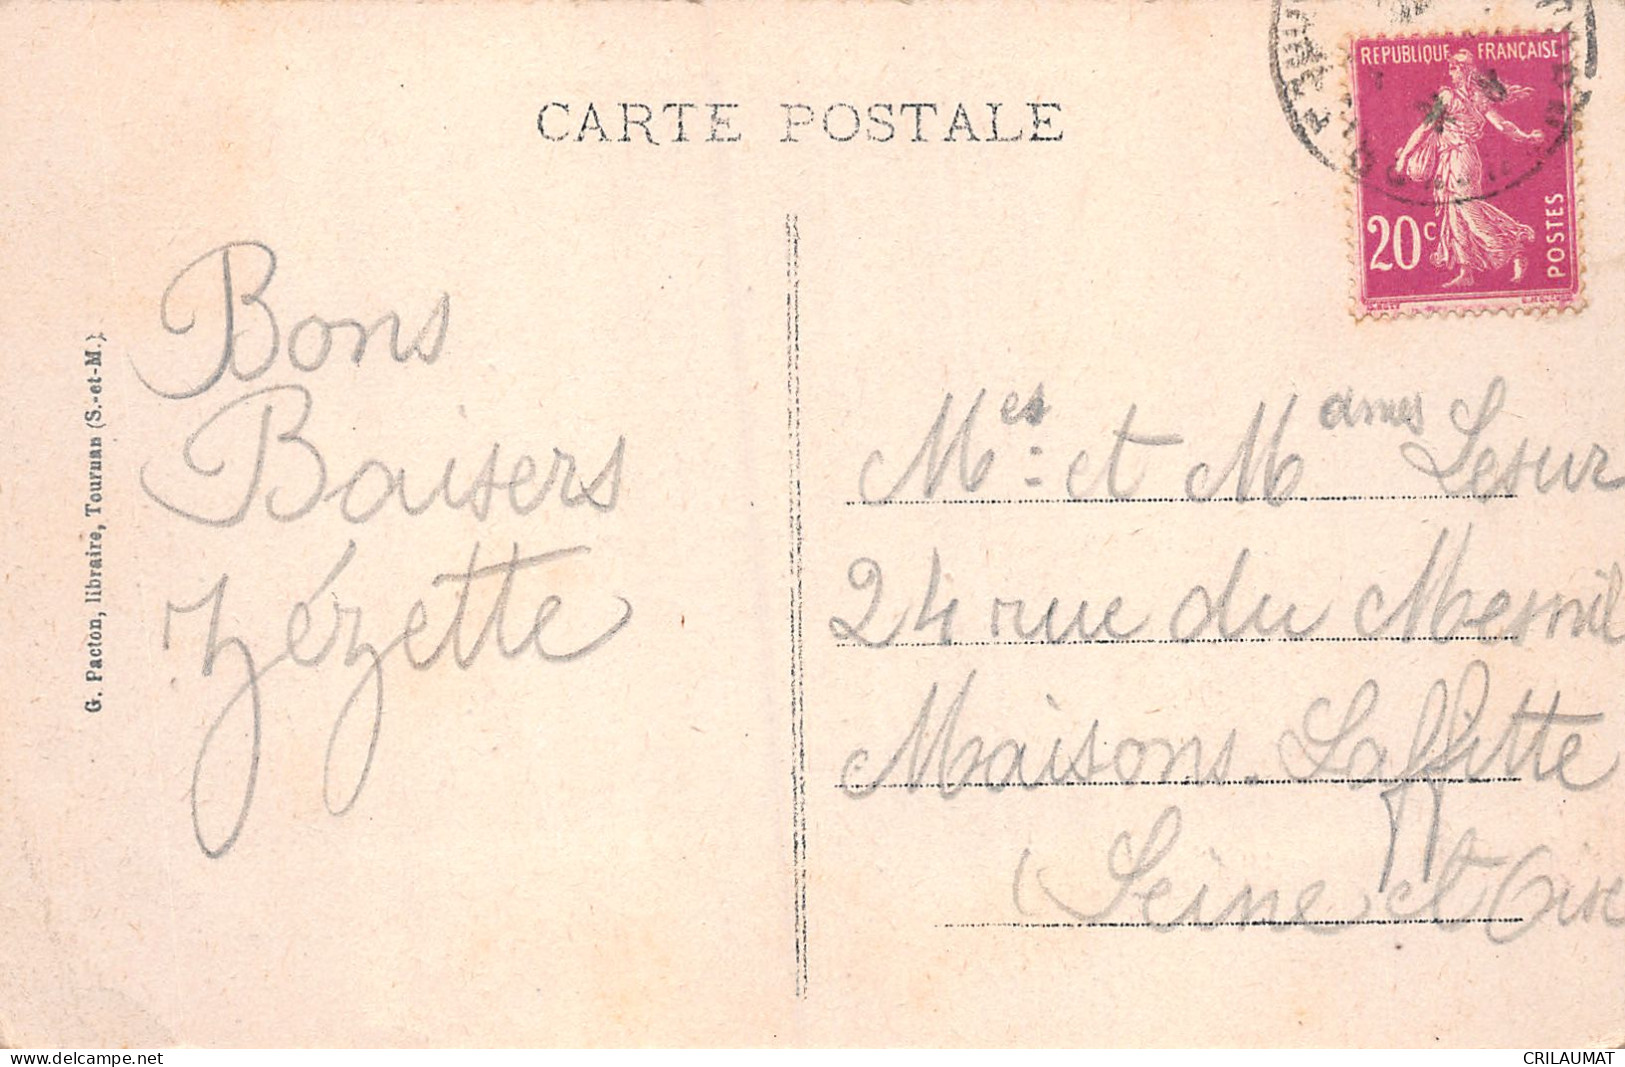 CARTE POSTALE
REPUBLIQUE FRANÇAISE
20c
POSTES
G. Pacton, libraire, Tournan (S.-et-M.)
Bons
Baisers
Zézette
Mes: et Mdames Lesur
24 rue du Mesnil
Maisons-Laffitte
(Seine et Oise
www.delcampe.net
CRILAUMAT